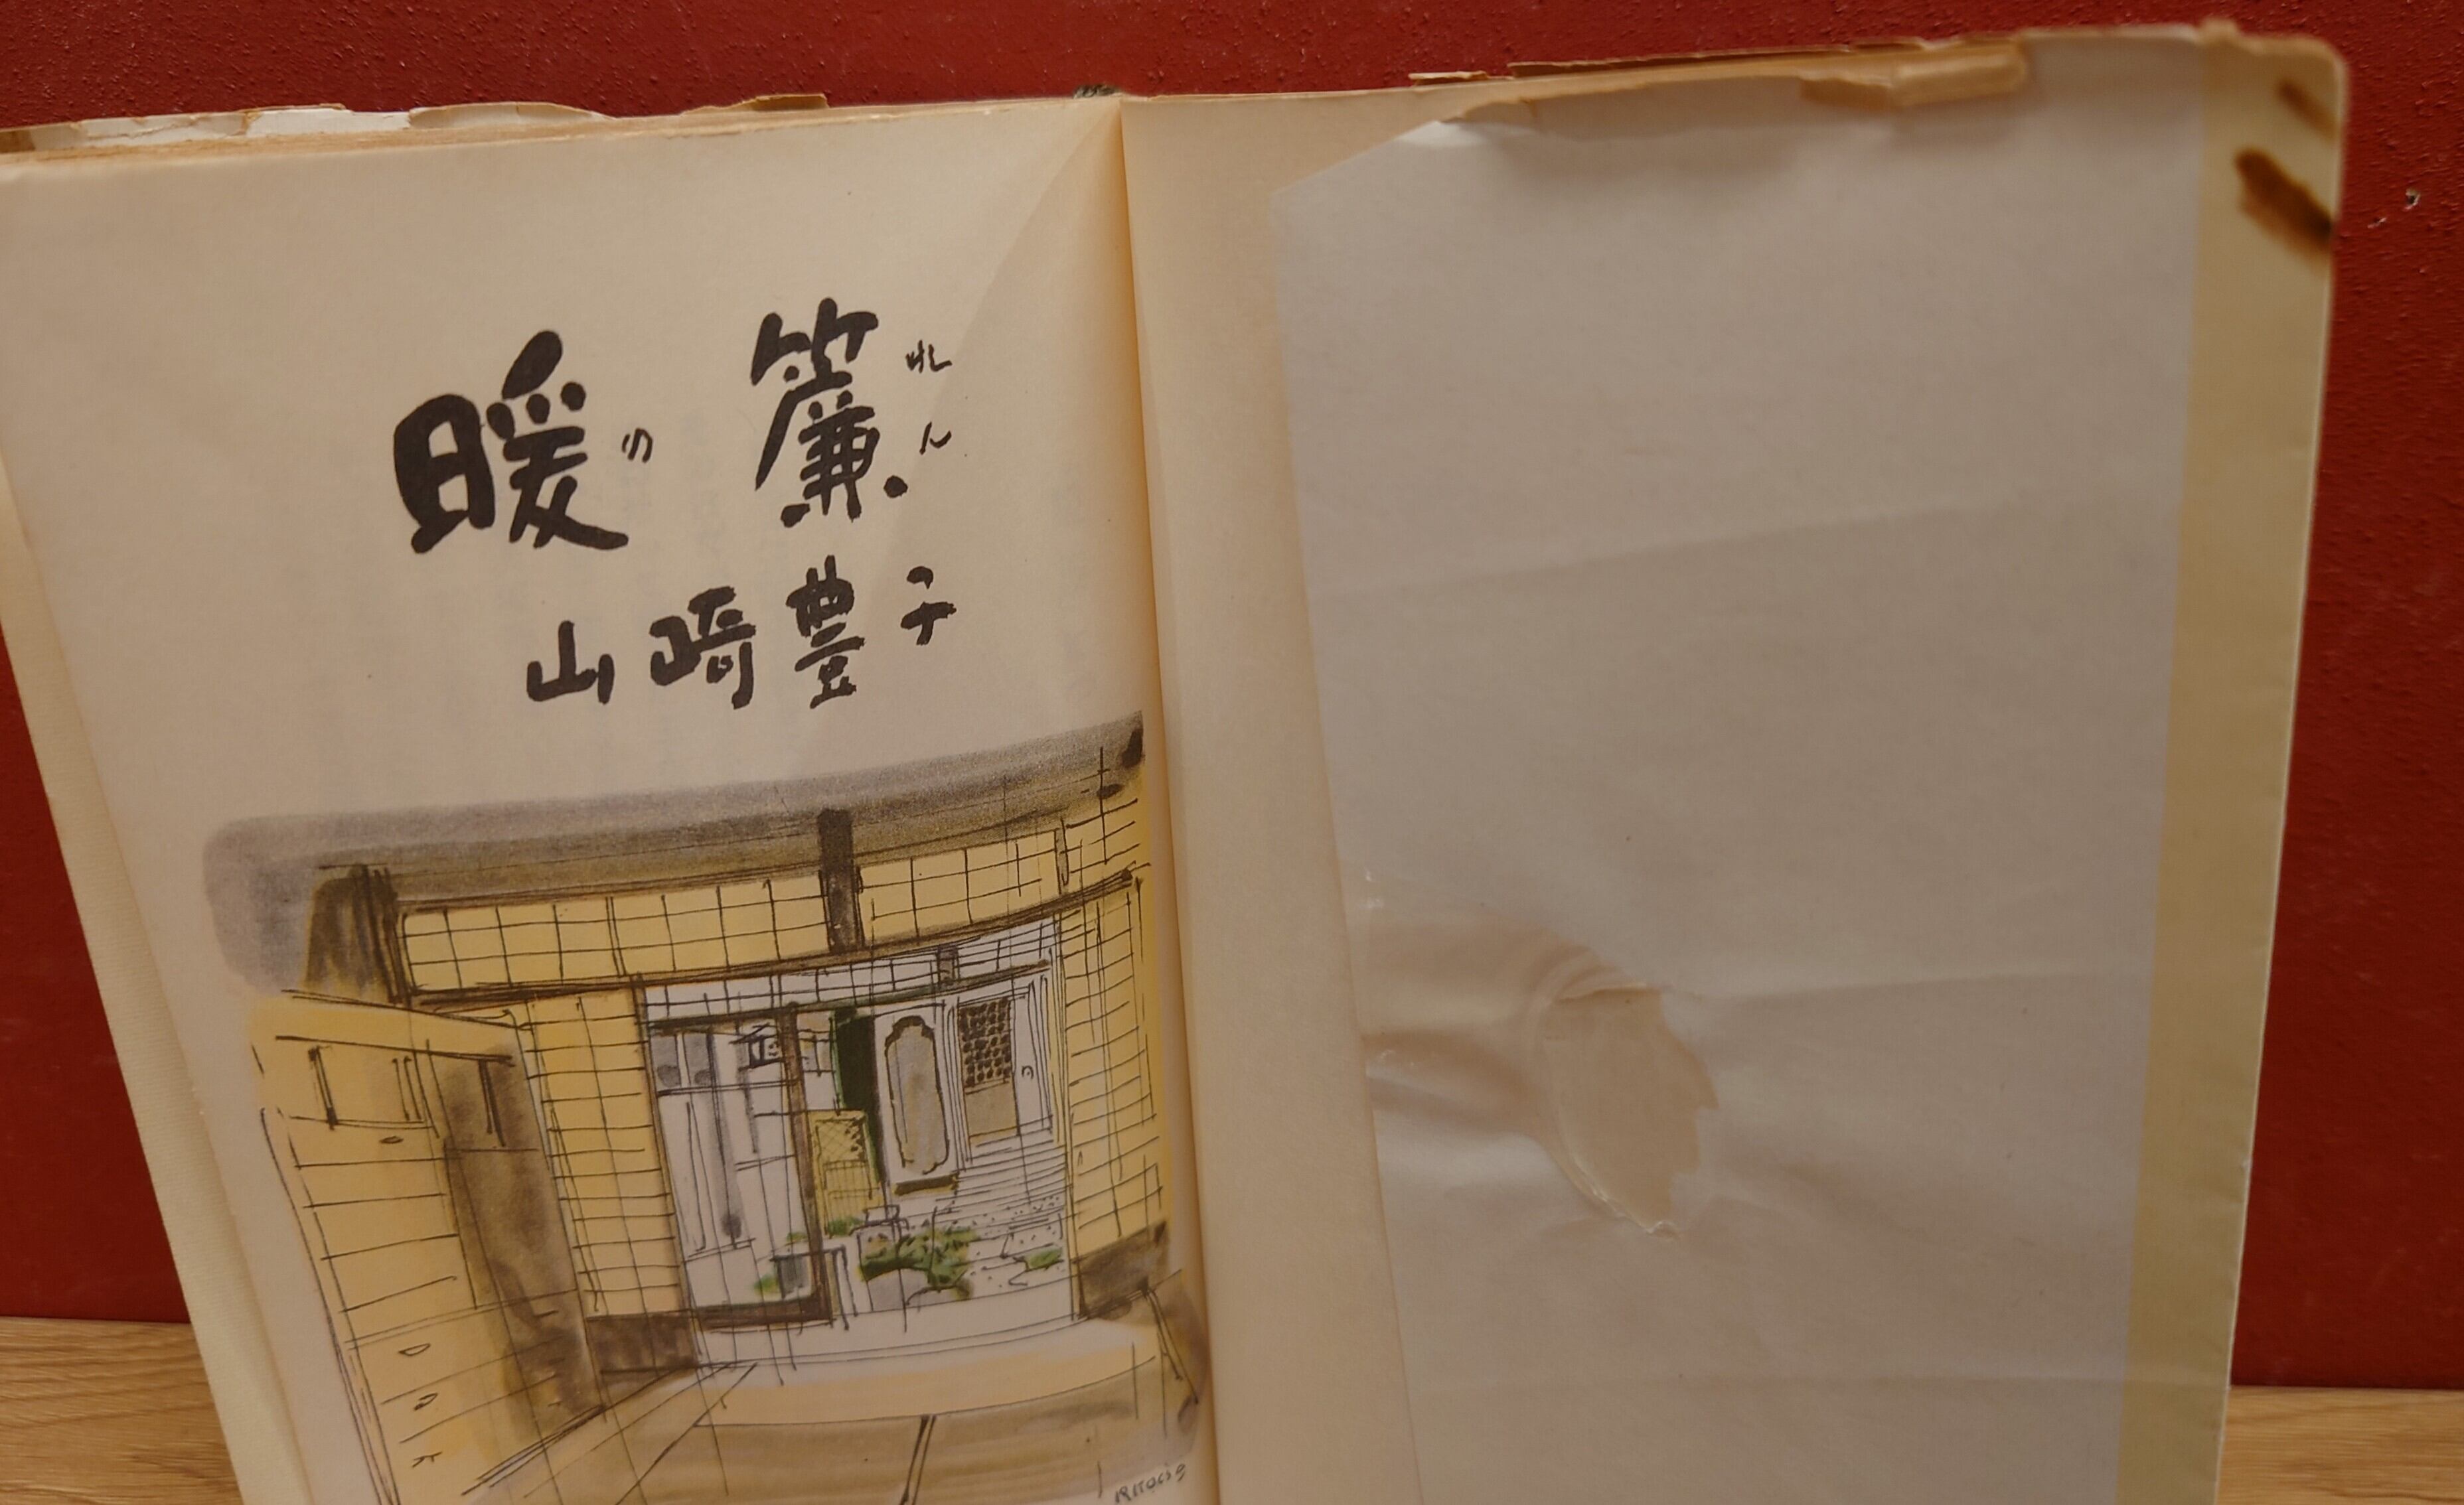 暖簾
のれん
山崎豊子